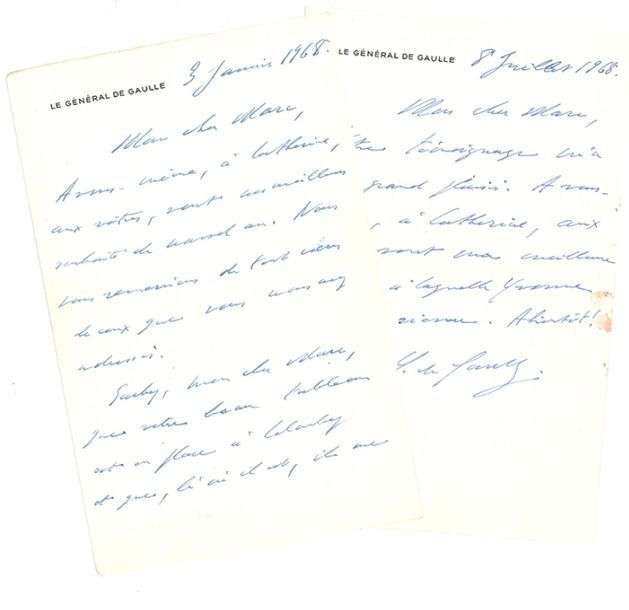 LE GÉNÉRAL DE GAULLE
3 Janvier 1968.
Mon cher Marc,
A vous-même, à Catherine,
aux vôtres, vont nos meilleurs
souhaits de nouvel an. Nous
vous remercions de tout cœur
de ceux que vous nous avez
adressés.
Sachez, mon cher Marc,
que votre beau tableau
est en place à Colombey
et que, là où il est, il me
LE GÉNÉRAL DE GAULLE
8 Juillet 1968.
Mon cher Marc,
témoignage m'a
grand plaisir. A vous-
, à Catherine, aux
vont mes meilleurs
à laquelle Yvonne
sienne. A bientôt!
C. de Gaulle.